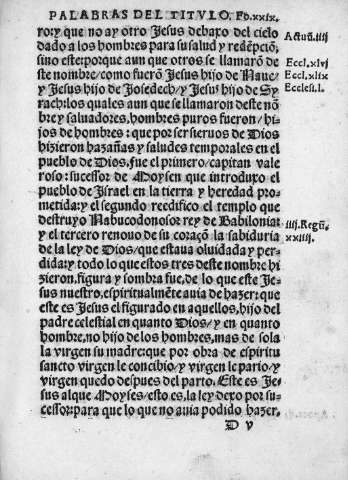 PALABRAS DEL TITVLO. Fo.xxix.
ro: y que no ay otro Jesus debaxo del cielo
dado a los hombres para su salud y redẽpciõ,
sino este: porque aun que otros se llamarõ de
este nombre/ como fuerõ Jesus hijo de Naue/
y Jesus hijo de Josedech/ y Jesus hijo de Sy
rach: los quales aun que se llamaron deste nõ
bre y saluadores, hombres puros fueron/ hi
jos de hombres: que por ser sieruos de Dios
hizieron hazañas y saludes temporales en el
pueblo de Dios. fue el primero/ capitan vale
roso: sucessor de Moysen que introduxo el
pueblo de Israel en la tierra y heredad pro
metida: y el segundo reedifico el templo que
destruyo Nabucodonosor rey de Babilonia:
y el tercero renouo de su coraçõ la sabiduria
de la ley de Dios/ que estaua oluidada y per
dida: y todo lo que estos tres deste nombre hi
zieron, figura y sombra fue, de lo que este Je
sus nuestro, espiritualmẽte auia de hazer: que
este es Jesus el figurado en aquellos, hijo del
padre celestial en quanto Dios/ y en quanto
hombre, no hijo de los hombres, mas de sola
la virgen su madre: que por obra de espiritu
sancto virgen le concibio/ y virgen le pario/ y
virgen quedo despues del parto. Este es Je
sus al que Moyses/ esto es, la ley dexo por su
cessor: para que lo que no auia podido hazer,
D v
Actuũ.iiij
Eccl.xlvj
Eccl.xlix
Eccles.l.
iiij.Regũ.
xxiiij.